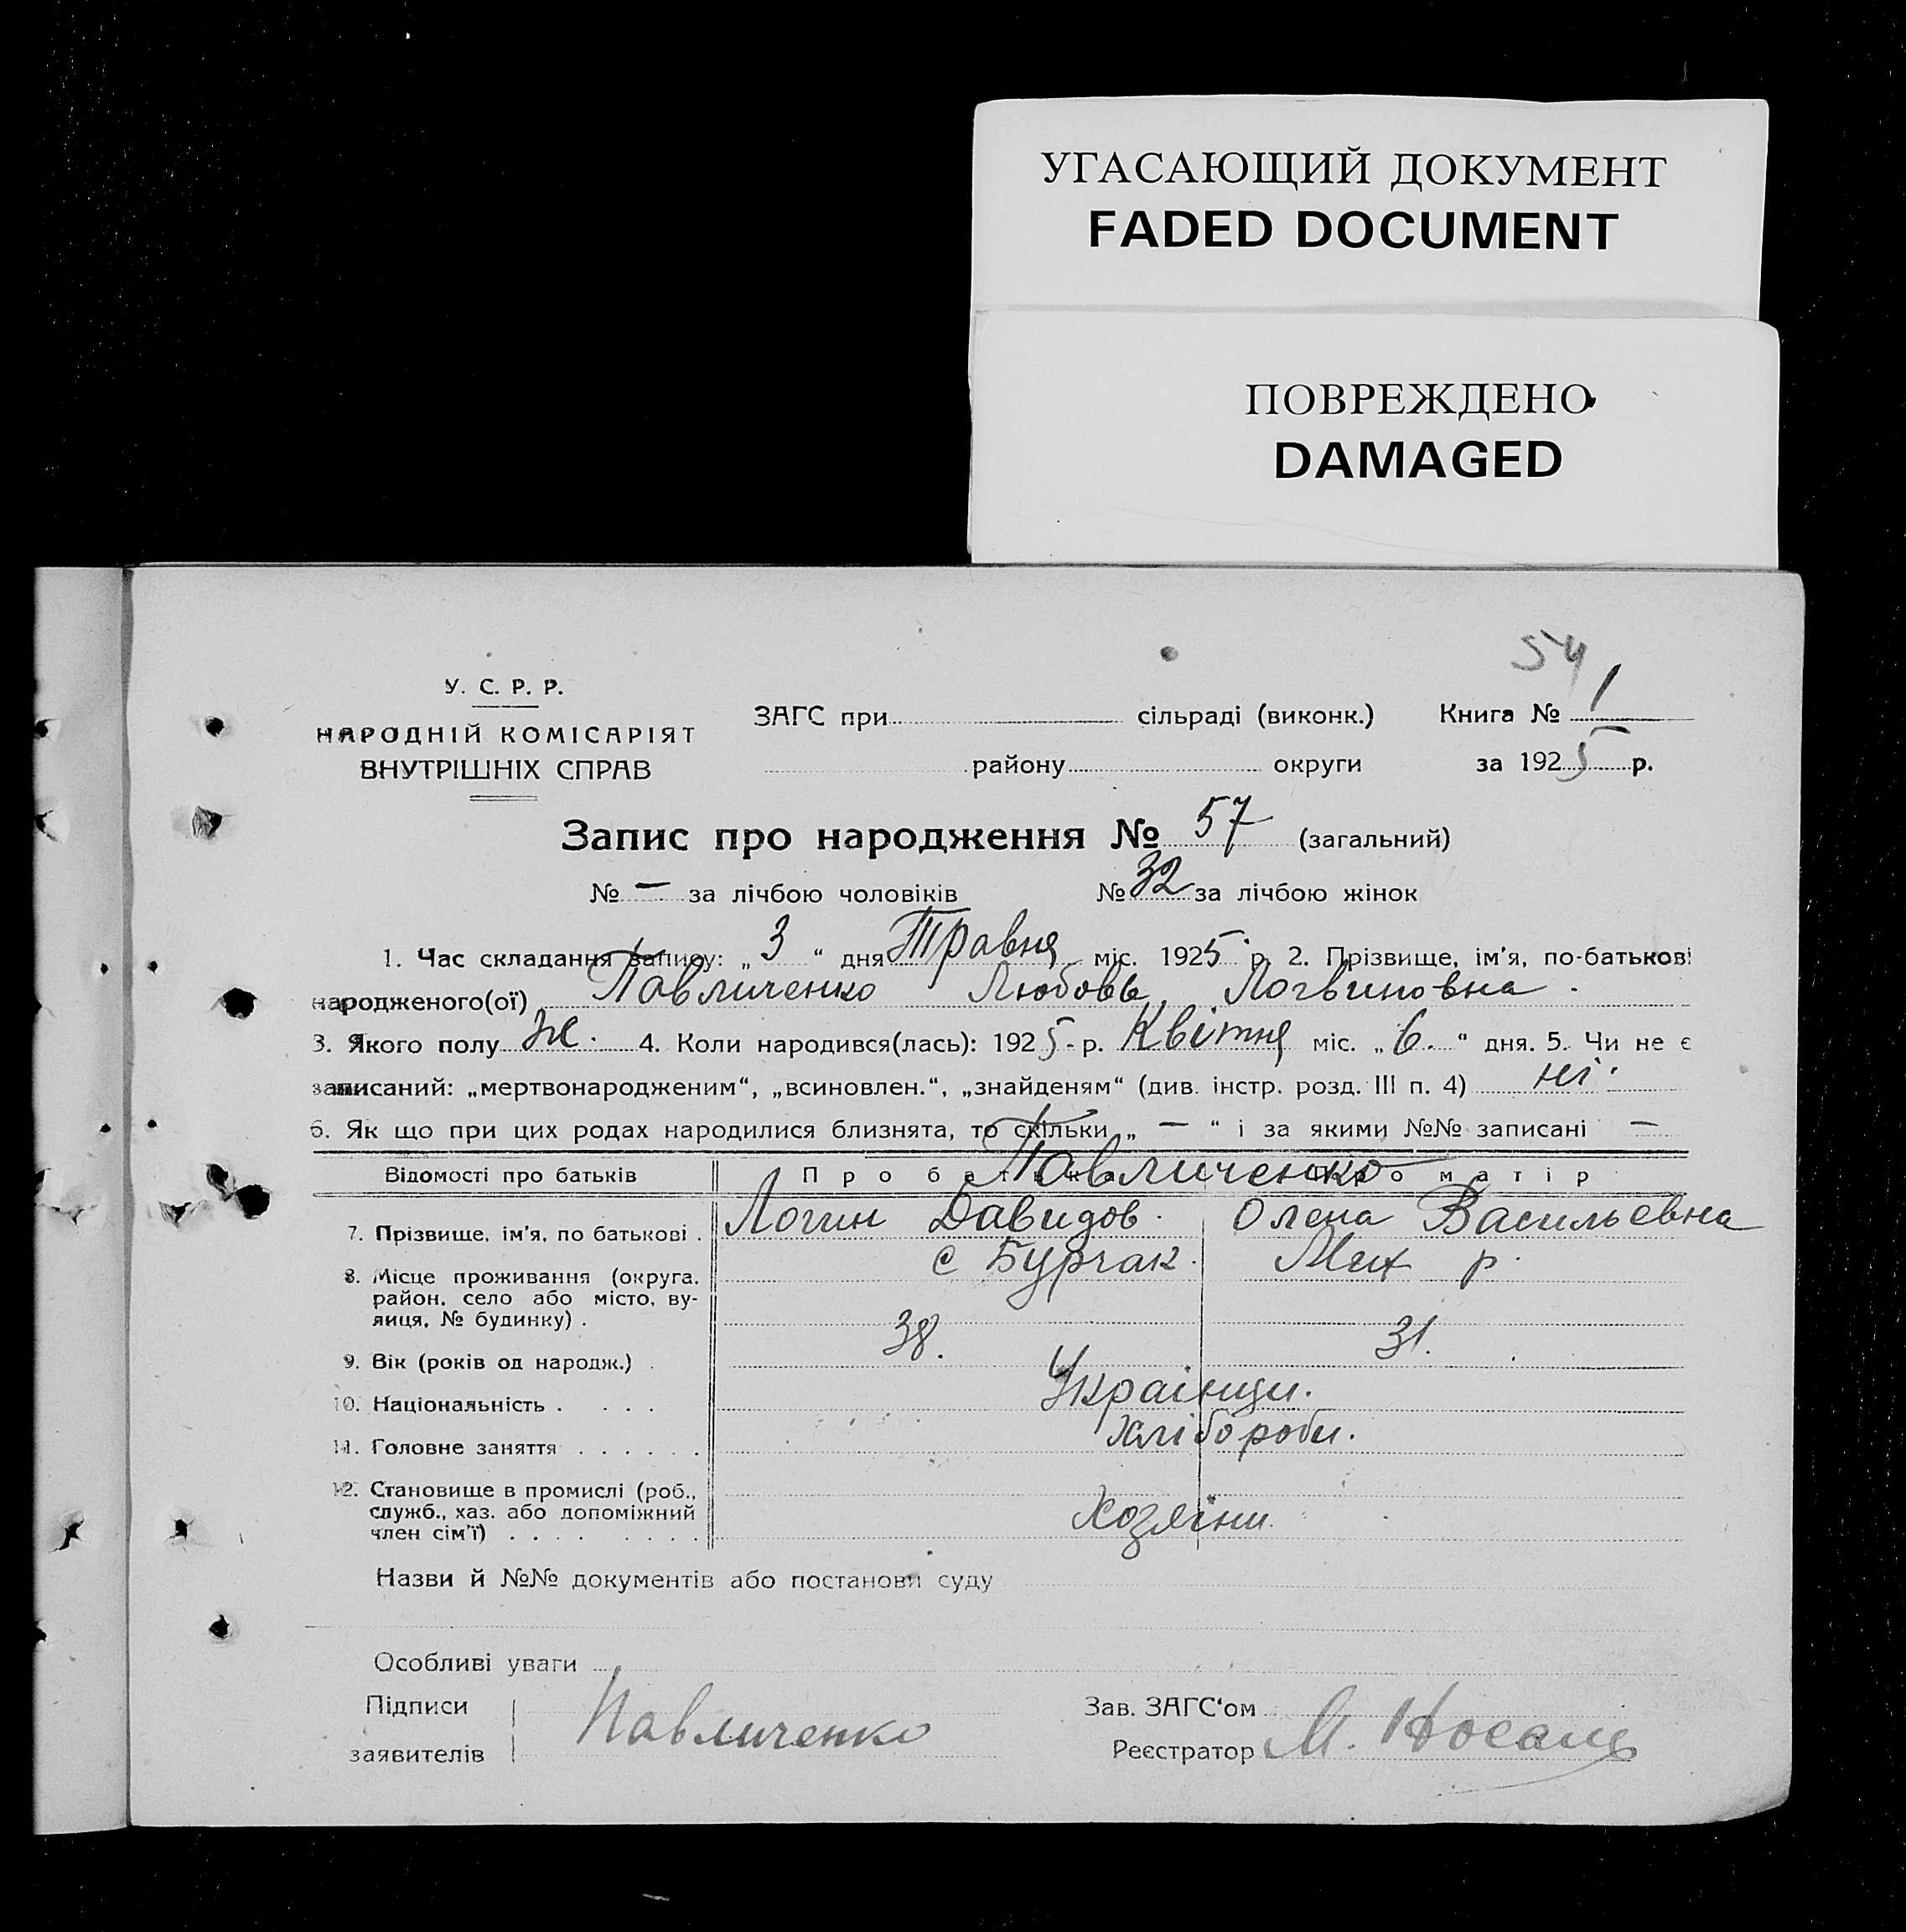 УГАСАЮЩИЙ ДОКУМЕНТ
FADED DOCUMENT
ПОВРЕЖДЕНО
DAMAGED
54
У. С. Р. Р.
НАРОДНІЙ КОМІСАРІЯТ
ВНУТРІШНІХ СПРАВ
ЗАГС при сільраді (виконк.) Книга № 1
району округи за 1925 р.
Запис про народження № 57 (загальний)
№ — за лічбою чоловіків № 32 за лічбою жінок
1. Час складання запису: „ 3 “ дня Травня міс. 1925 р. 2. Прізвище, ім'я, по-батькові
народженого(ої) Павличенко Любовь Логвиновна.
3. Якого полу же. 4. Коли народився(лась): 1925-р. Квітня міс. „ 6. “ дня. 5. Чи не є
записаний: „мертвонародженим“, „всиновлен.“, „знайденям“ (див. інстр. розд. III п. 4) ні.
6. Як що при цих родах народилися близнята, то скільки „ — “ і за якими №№ записані —
Відомості про батьків Про батька Про матір
Павличенко
7. Прізвище, ім'я, по батькові . Логин Давидов. Олена Васильевна
8. Місце проживання (округа, с Бурчак. Мих р.
район, село або місто, ву-
лиця, № будинку) .
9. Вік (років од народж.) . 38. 31.
10. Національність . . . . Українци.
11. Головне заняття . . . . . . Хлібороби.
12. Становище в промислі (роб.,
служб., хаз. або допоміжний Хозяіни.
член сім'ї) . . . . . . . .
Назви й №№ документів або постанови суду
Особливі уваги
Підписи Зав. ЗАГС'ом
заявителів Павличенко Реєстратор М. Носань